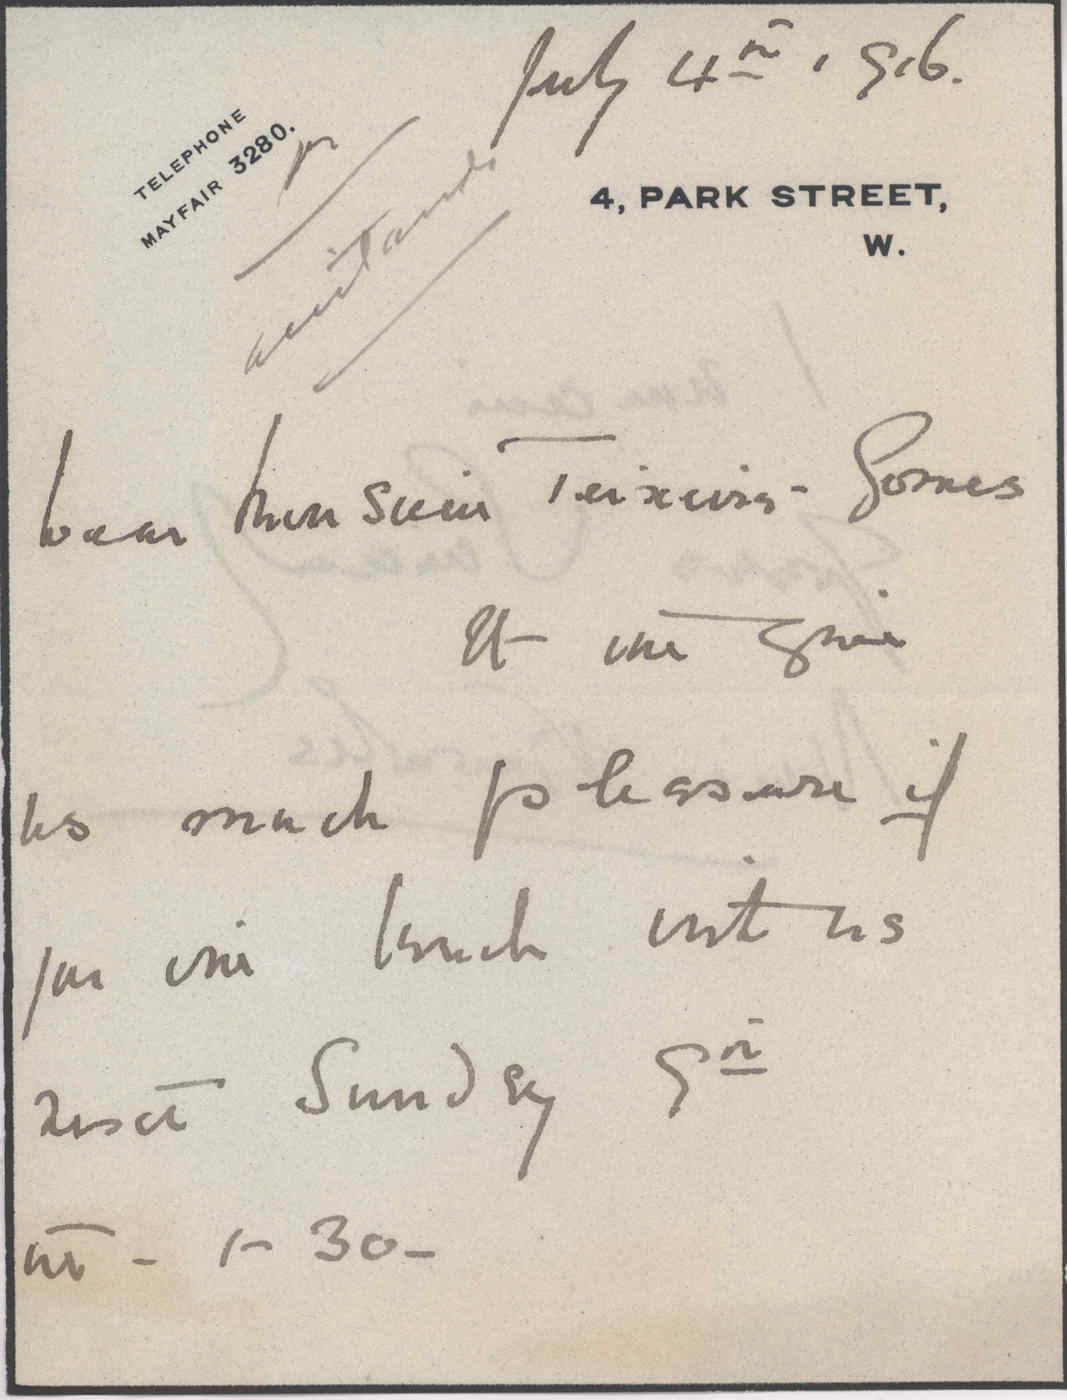 July 4th 1916.
TELEPHONE
MAYFAIR 3280.
4, PARK STREET,
W.
Dear Monsieur Teixeira-Gomes
It will give
us much pleasure if
you will lunch with us
next Sunday 9th
at - 1-30-